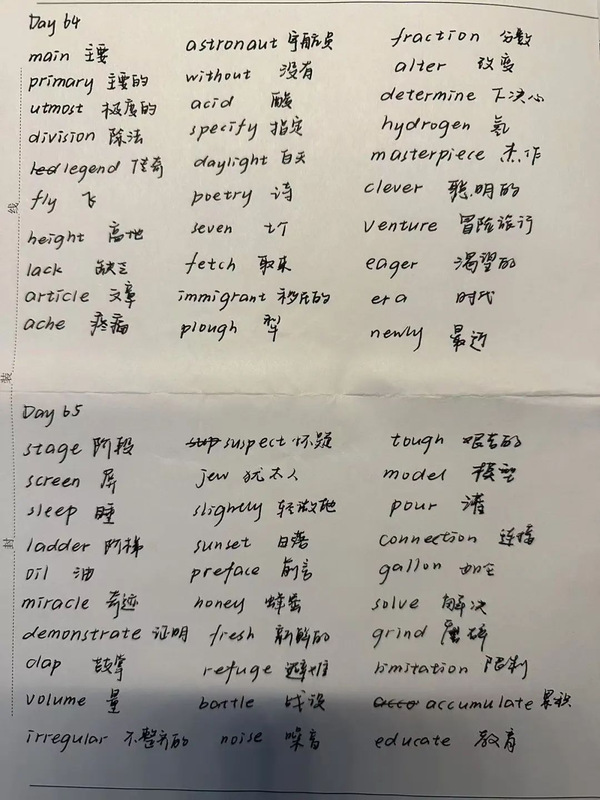 Day 64
main 主要 astronaut 宇航员 fraction 分数
primary 主要的 without 没有 alter 改变
utmost 极度的 acid 酸 determine 下决心
division 除法 specify 指定 hydrogen 氢
legend 传奇 daylight 白天 masterpiece 杰作
fly 飞 poetry 诗 clever 聪明的
height 高地 seven 七个 venture 冒险旅行
lack 缺乏 fetch 取来 eager 渴望的
article 文章 immigrant 移民的 era 时代
ache 疼痛 plough 犁 newly 最近
线
装
封
Day 65
stage 阶段 suspect 怀疑 tough 艰苦的
screen 屏 jew 犹太人 model 模型
sleep 睡 slightly 轻微地 pour 灌
ladder 阶梯 sunset 日落 connection 连接
oil 油 preface 前言 gallon
miracle 奇迹 honey 蜂蜜 solve 解决
demonstrate 证明 fresh 新鲜的 grind 磨碎
clap 鼓掌 refuge 避难 limitation 限制
volume 量 battle 战役 accumulate 累积
irregular 不整齐的 noise 噪音 educate 教育